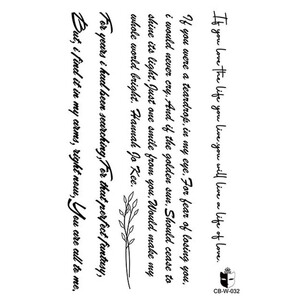 If you love the life you live you will live a life of love.
If you were a teardrop,in my eye,For fear of losing you,
i would never cry,And if the golden sun,Should cease to
shine its light,Just one smile from you,Would make my
whole world bright. Hannah Jo Kee.
For years i had been searching,For that perfect fantasy,
But, i find it in my arms, right now, You are all to me,
CB-W-032